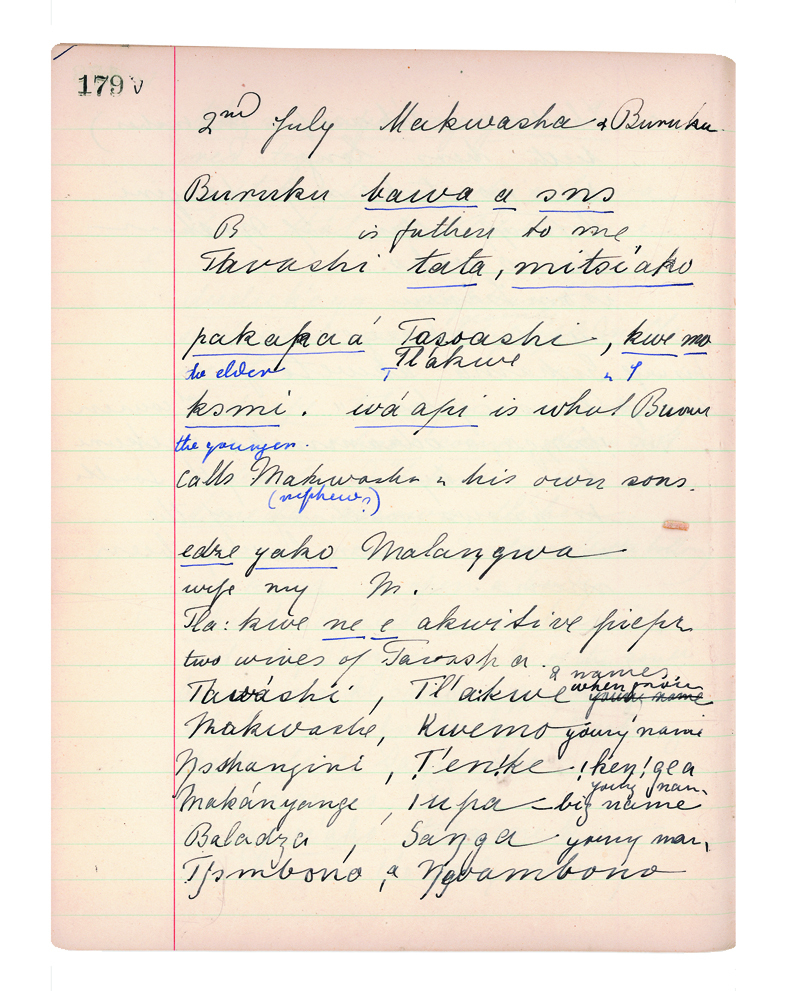 179 v
2nd July Makwasha & Buruku
Buruku bawa a sns
B is father to me
Tavashi tata, mitsi'ako
pakapaá Tasoashi, kwe mo
the elder Tl'akwe " "
ksmi. wá api is what Buru
the younger.
calls Makwasha & his own sons.
(nephews?)
edze yako Malangwa
wife my M.
Tla: kwe ne e akwitive
two wives of
2 names
when
Tawáshi, Tl'a:kwe young name
Makwasha, Kwemo young name
Nshangini, T!en!ke !key!gea
young nam.
Makányange, Iupa - big name
Baladza, Sanga young nam,
Tssmbono, a Ngoambono